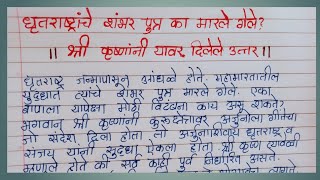 धृतराष्ट्रांचे शंभर पुत्र का मारले गेले?
॥ श्री कृष्णांनी यावर दिलेले उत्तर ॥
धृतराष्ट्र जन्मापासून आंधळे होते. महाभारतातील
युद्धात त्यांचे शंभर पुत्र मारले गेले. एका
बापाला यापेक्षा मोठी विटंबना काय असू शकते?
भगवान श्री कृष्णांनी कुरुक्षेत्रावर अर्जुनाला गीतेचा
जो संदेश दिला होता तो अर्जुनाशिवाय धृतराष्ट्र व
संजय यांनी सुद्धा ऐकला होता श्री कृष्ण त्यावेळी
म्हणाले होते की सर्व काही पूर्व निर्धारित असते.